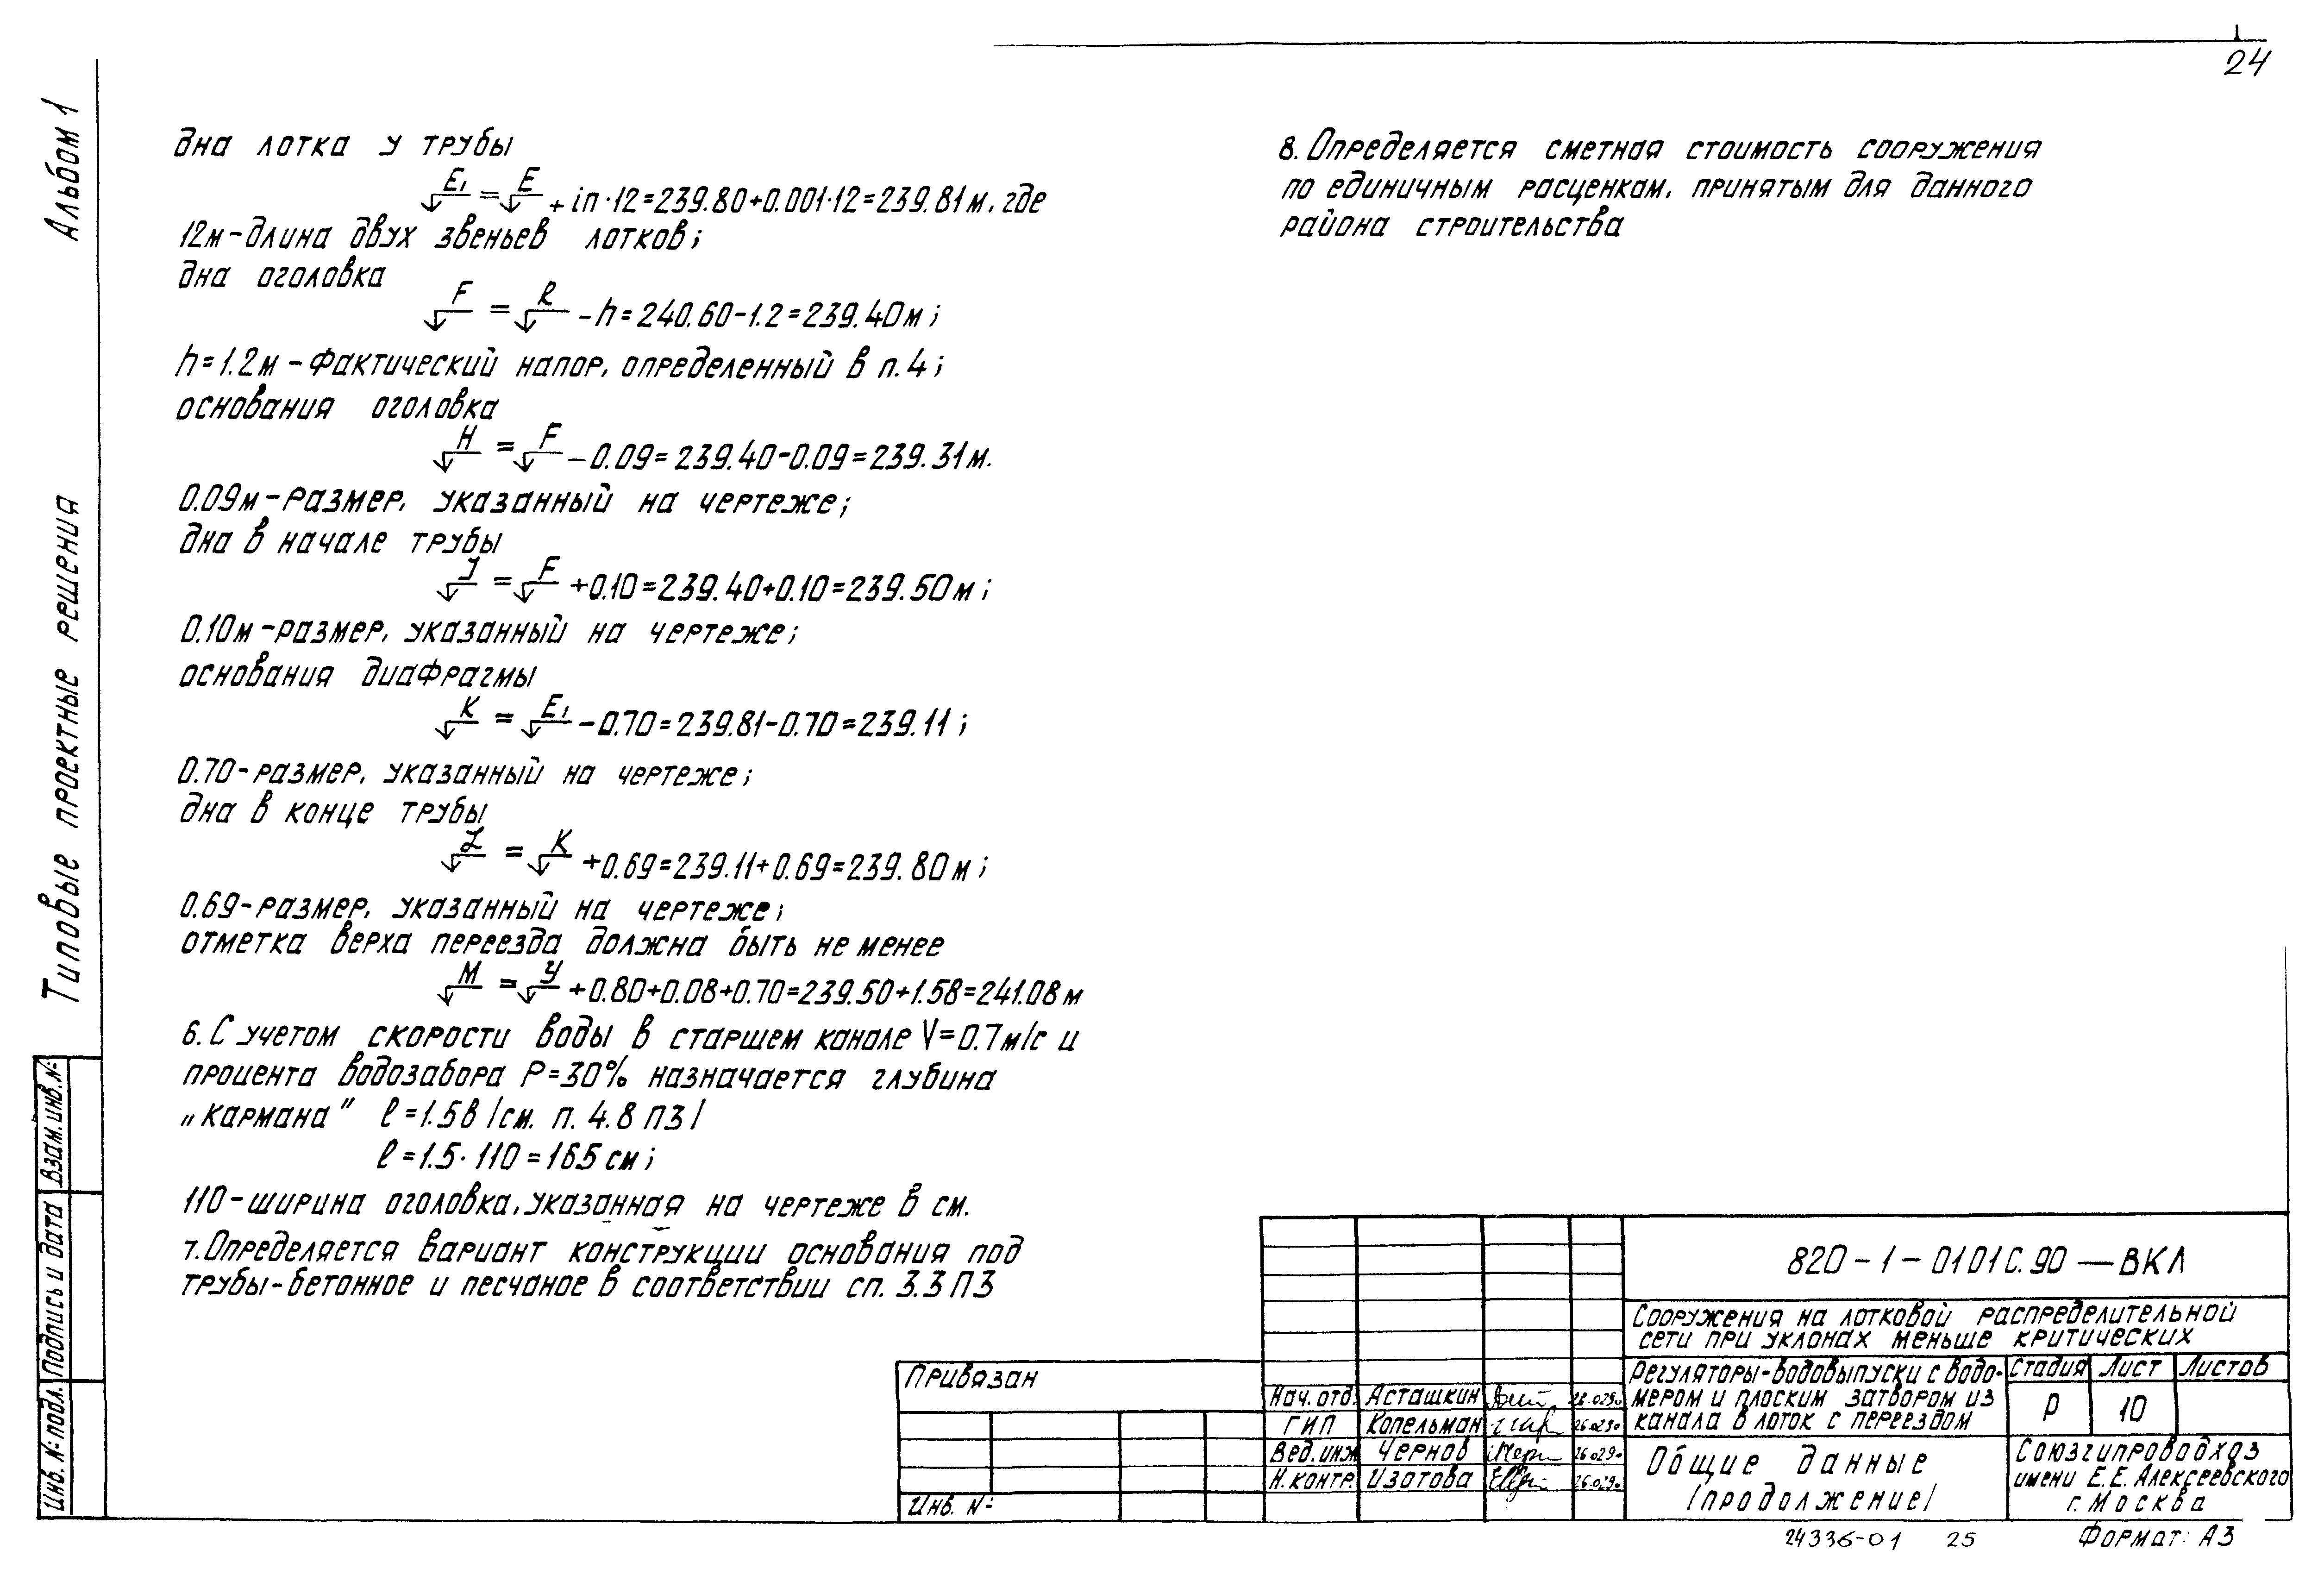 24
Альбом 1
Типовые проектные решения
дна лотка у трубы
E₁ = E + iп·12=239.80+0.001·12=239.81м, где
12м-длина двух звеньев лотков;
дна оголовка
F = R -h=240.60-1.2=239.40м;
h=1.2м-фактический напор, определенный в п.4;
основания оголовка
H = F -0.09=239.40-0.09=239.31м.
0.09м-размер, указанный на чертеже;
дна в начале трубы
J = F +0.10=239.40+0.10=239.50м;
0.10м-размер, указанный на чертеже;
основания диафрагмы
K = E₁ -0.70=239.81-0.70=239.11;
0.70-размер, указанный на чертеже;
дна в конце трубы
L = K +0.69=239.11+0.69=239.80м;
0.69-размер, указанный на чертеже;
отметка верха переезда должна быть не менее
M = У +0.80+0.08+0.70=239.50+1.58=241.08м
6. С учетом скорости воды в старшем канале V=0.7м/с и
процента водозабора P=30% назначается глубина
„кармана" ℓ=1.5в /см. п. 4.8 ПЗ/
ℓ=1.5·110=165см;
110-ширина оголовка, указанная на чертеже в см.
7. Определяется вариант конструкции основания под
трубы-бетонное и песчаное в соответствии сп. 3.3 ПЗ
8. Определяется сметная стоимость сооружения
по единичным расценкам, принятым для данного
района строительства
Взам. инв. №
Подпись и дата
Инв. № подл.
Привязан
Инв. №
Нач. отд. Асташкин 26.0290
ГИП Копельман 26.0290
Вед. инж Чернов 26.0290
Н. контр. Изотова 26.0290
820-1-0101С.90-ВКЛ
Сооружения на лотковой распределительной
сети при уклонах меньше критических
Регуляторы-водовыпуски с водо-
мером и плоским затвором из
канала в лоток с переездом
Стадия Лист Листов
Р 10
Общие данные
/продолжение/
Союзгипроводхоз
имени Е.Е. Алексеевского
г. Москва
24336-01 25 Формат: А3